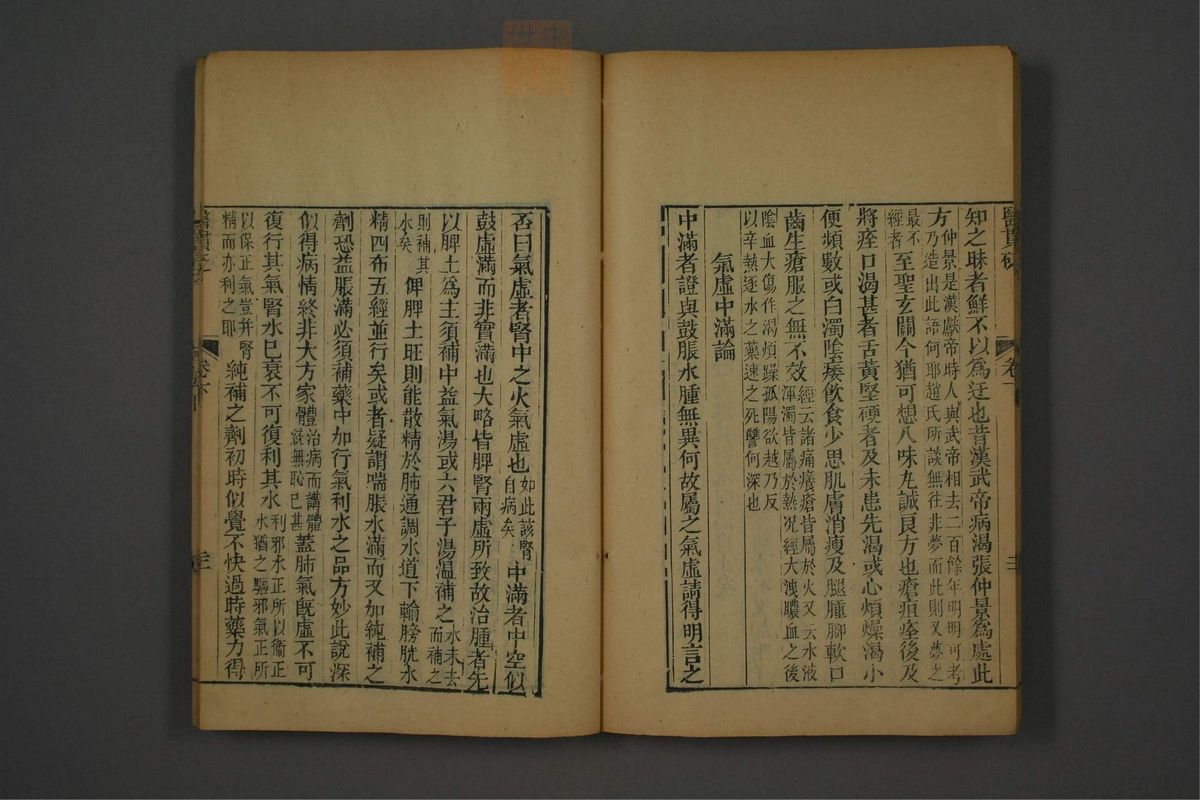 醫貫砭
卷下
知之昧者鮮不以為迂也昔漢武帝病渴張仲景為處此
方仲景是漢獻帝時人與武帝相去二百餘年明明可考
方乃造出此語何耶趙氏所談無往非夢而此則又夢之
最不
經者至聖玄關今猶可想八味丸誠良方也瘡痕痊後及
將痊口渴甚者舌黃堅硬者及未患先渴或心煩燥渴小
便頻數或白濁陰痿飲食少思肌膚消瘦及腿腫脚軟口
齒生瘡服之無不效經云諸痛癢瘡皆屬於火又云水液
渾濁皆屬於熱况經大洩膿血之後
陰血大傷作渴煩躁孤陽欲越乃反
以辛熱逐水之藥速之死讐何深也
氣虛中滿論
中滿者證與鼓脹水腫無異何故屬之氣虛請得明言之
否曰氣虛者腎中之火氣虛也如此該腎
自病矣中滿者中空似
鼓虛滿而非實滿也大略皆脾腎兩虛所致故治腫者先
以脾土為主須補中益氣湯或六君子湯温補之水未去
而補之
則補其
水矣俾脾土旺則能散精於肺通調水道下輸膀胱水
精四布五經並行矣或者疑謂喘脹水滿而又加純補之
劑恐益脹滿必須補藥中加行氣利水之品方妙此說深
似得病情終非大方家體治病而講體
統無恥已甚蓋肺氣既虛不可
復行其氣腎水已衰不可復利其水利邪水正所以衞正
水猶之驅邪氣正所
以保正氣豈并腎
精而亦利之耶純補之劑初時似覺不快過時藥力得
醫貫砭
卷下